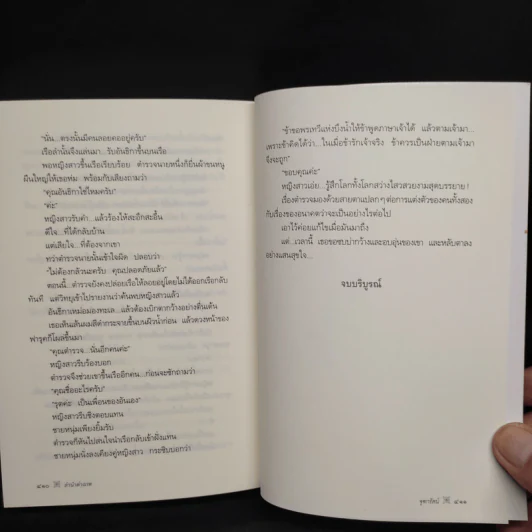 "นั่น...ตรงนั้นมีคนลอยคออยู่ครับ"
เรือลำนั้นจึงแล่นมา...รับอันธิกาขึ้นบนเรือ
พอหญิงสาวขึ้นเรือเรียบร้อย ตำรวจนายหนึ่งก็ยื่นผ้าขนหนู
ผืนใหญ่ให้เธอห่ม พร้อมกับเสียงถามว่า
"คุณอันธิกาใช่ไหมครับ"
"ค่ะ"
หญิงสาวรับคำ...แล้วร้องไห้สะอึกสะอื้น
ดีใจ...ที่ได้กลับบ้าน
แต่เสียใจ...ที่ต้องจากเขา
ทว่าตำรวจนายนั้นเข้าใจผิด ปลอบว่า
"ไม่ต้องกลัวนะครับ คุณปลอดภัยแล้ว"
ตอนนี้...ตำรวจยังคงปล่อยเรือให้ลอยอยู่โดยไม่ได้ออกเรือกลับ
ทันที แต่วิทยุเข้าไปรายงานว่าค้นพบหญิงสาวแล้ว
อันธิกาเหม่อมองทะเล...แล้วต้องเบิกตากว้างอย่างตื่นเต้น
เธอเห็นเส้นผมสีดำกระจายขึ้นบนผิวน้ำก่อน แล้วดวงหน้าของ
ฟารุคก็โผล่ขึ้นมา
"คุณตำรวจ...นั่นอีกคนค่ะ"
หญิงสาวรีบร้องบอก
ตำรวจจึงช่วยเขาขึ้นเรืออีกคน...ก่อนจะซักถามว่า
"คุณชื่ออะไรครับ"
"รุคค่ะ เป็นเพื่อนของอันเอง"
หญิงสาวรีบชิงตอบแทน
ชายหนุ่มเพียงยิ้มรับ
ตำรวจก็หันไปสนใจนำเรือกลับเข้าฝั่งแทน
ชายหนุ่มนั่งลงเคียงคู่หญิงสาว กระซิบบอกว่า
๔๑๐
"ข้าขอพรเทวีแห่งบึงน้ำให้ข้าพูดภาษาเจ้าได้ แล้วตามเจ้ามา...
เพราะข้าคิดได้ว่า...ในเมื่อข้ารักเจ้าจริง ข้าควรเป็นฝ่ายตามเจ้ามา
จึงจะถูก"
"ขอบคุณค่ะ"
หญิงสาวเอ่ย...รู้สึกโลกทั้งโลกสว่างไสวสวยงามสุดบรรยาย!
เรื่องตำรวจมองด้วยสายตาแปลกๆ ต่อการแต่งตัวของคนทั้งสอง
กับเรื่องของอนาคตว่าจะเป็นอย่างไรต่อไป
เอาไว้ค่อยแก้ไขเมื่อมันมาถึง
แต่...เวลานี้ เธอขอซบบ่ากว้างและอบอุ่นของเขา และหลับตาลง
อย่างแสนสุขใจ...
จบบริบูรณ์
จุฑารัตน์ ๔๑๑